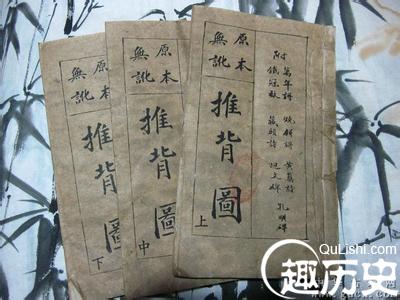 原本
無訛
推背圖
下
原本
無訛
推背圖
中
附 萬年 燒餅 黃蘗 孔明碑
鐵冠 藏頭詩
原本
無訛
推背圖
上
QuLishi.com
趣历史